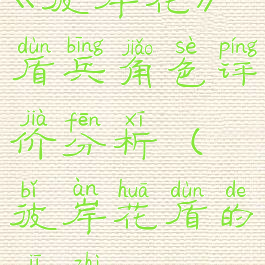 《彼岸花》
dùn bīng jiǎo sè píng
盾兵角色评
jià fēn xī
价分析（
bǐ àn huā dùn de
彼岸花盾的
jī zhì